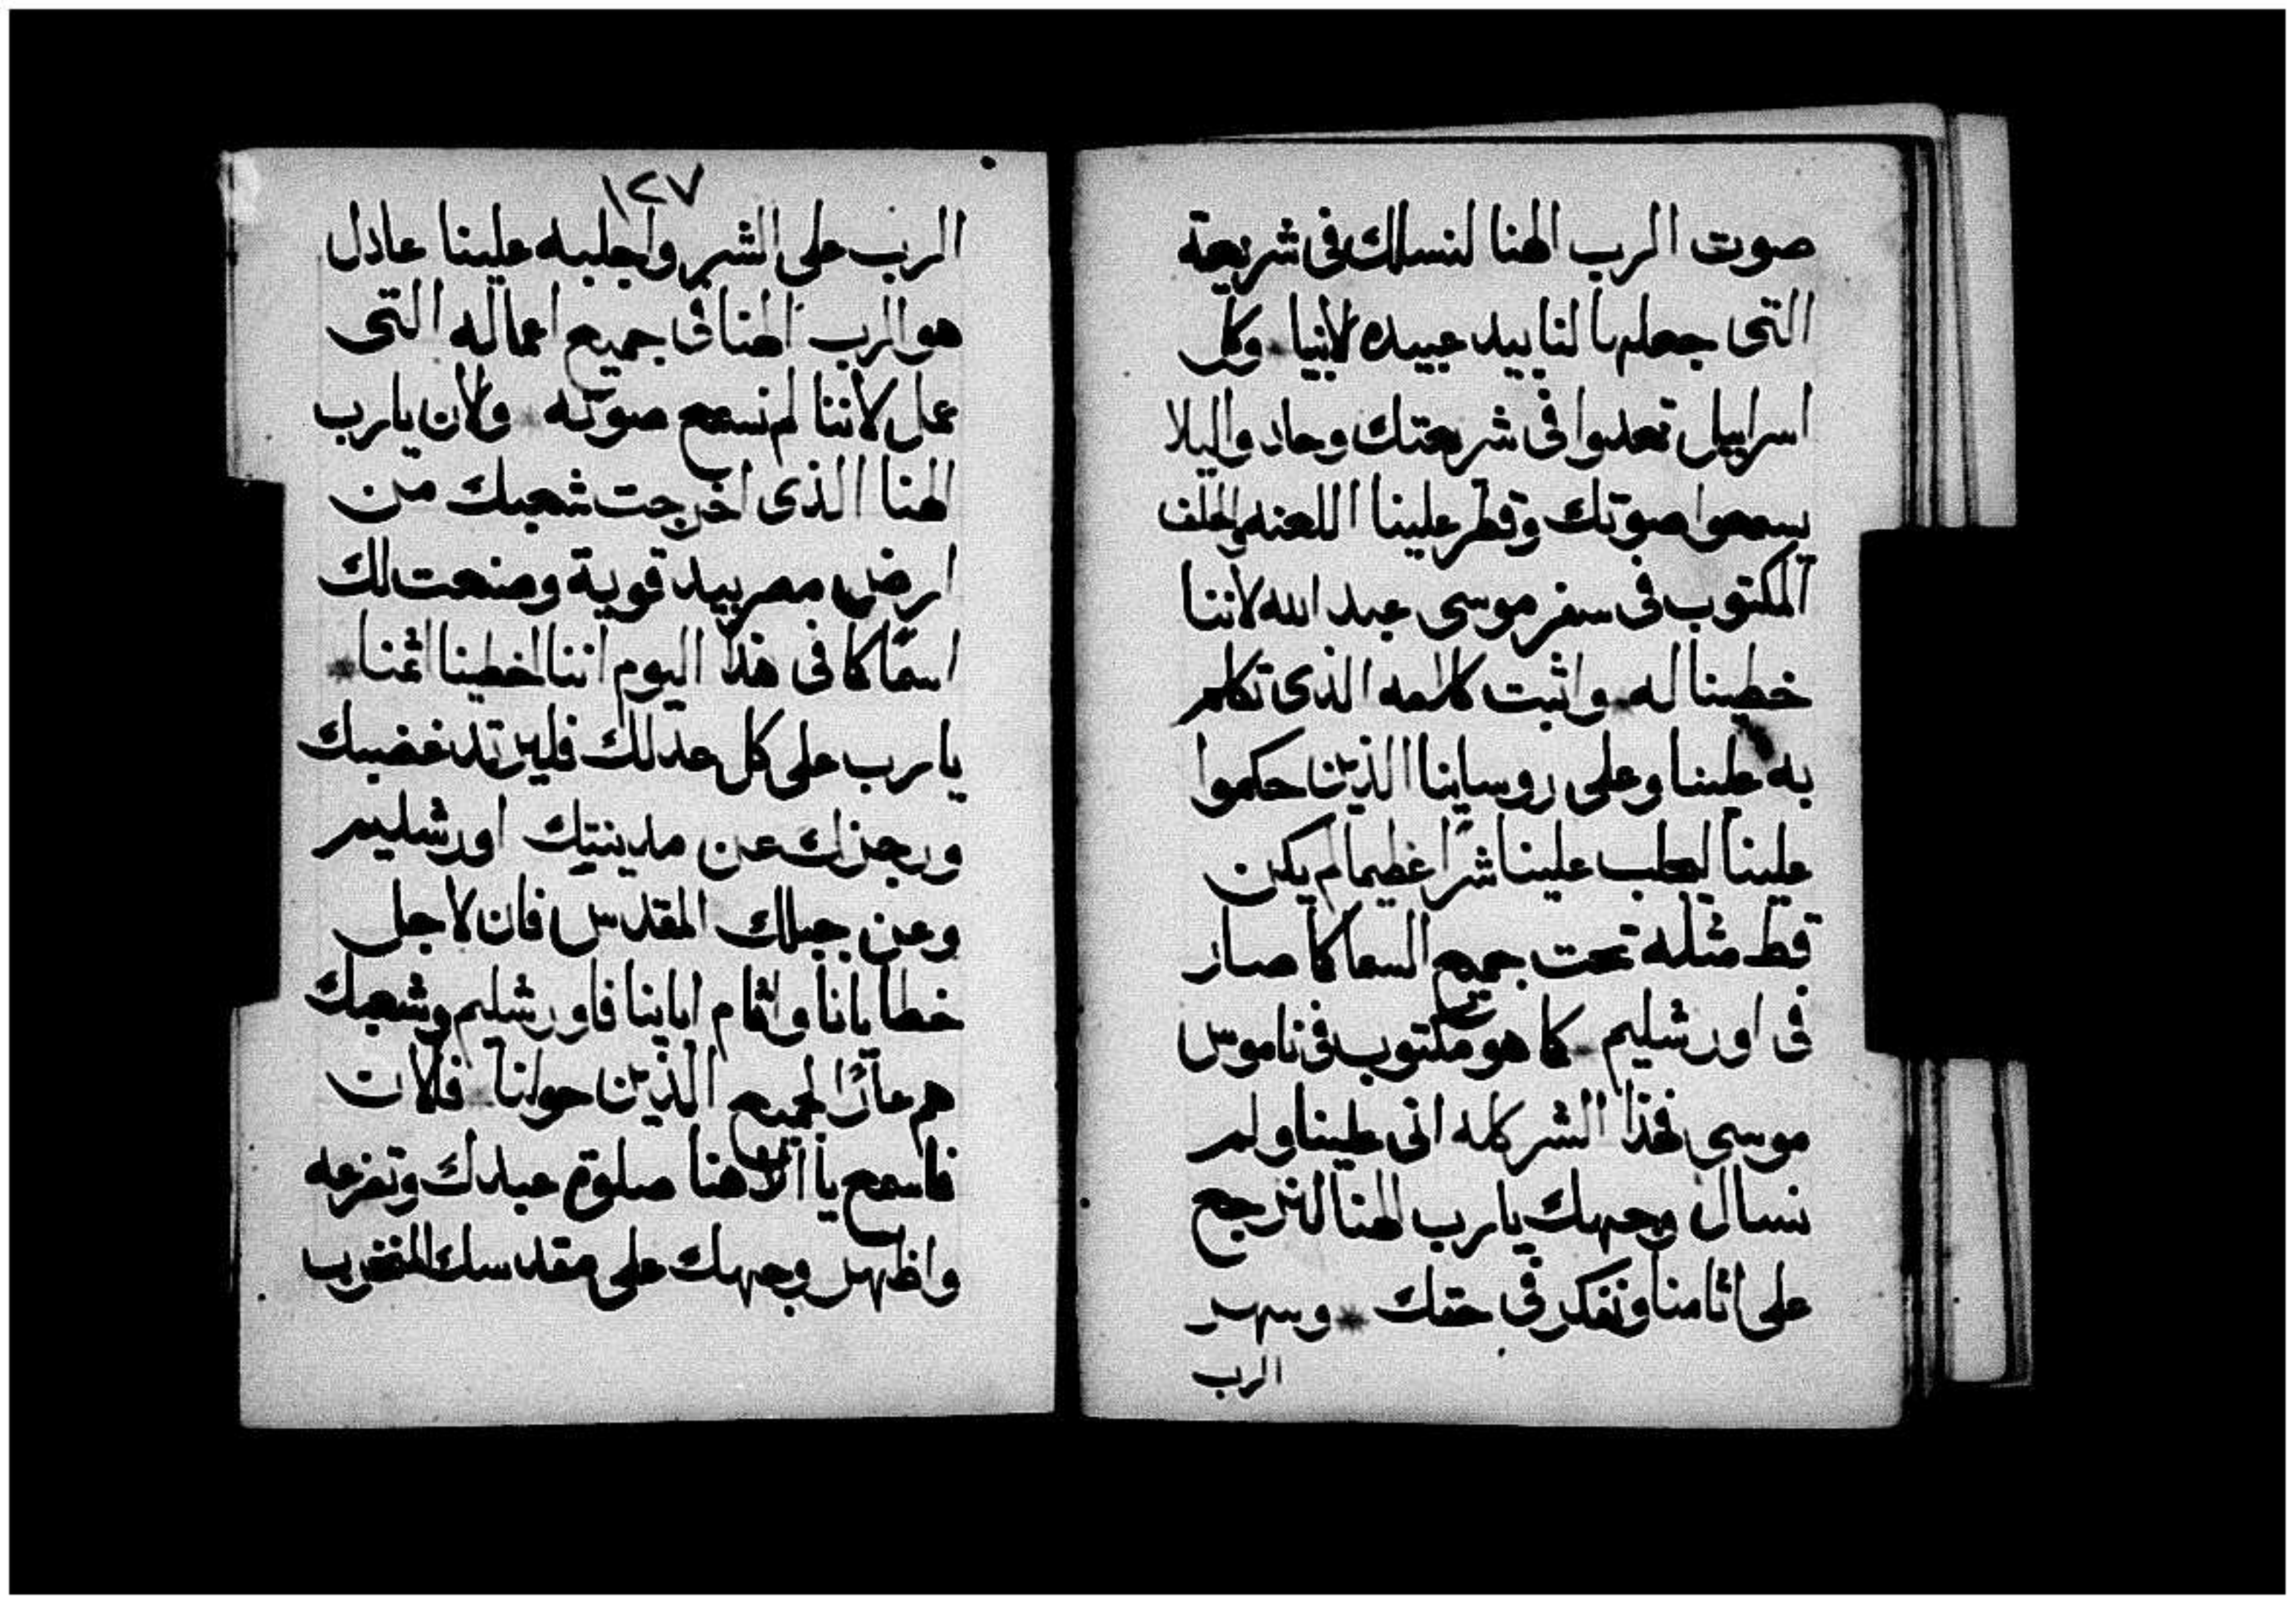 صوت الرب الهنا لنسلك فى شريعة
التى جعلها لنا بيد عبيده لانبيا وكل
اسراييل تعدوا فى شريعتك وحادوا ليلا
يسمعوا صوتك وقطر علينا اللعنه والحلف
المكتوب فى سفر موسى عبد الله لاننا
خطينا له واثبت كلامه الذى تكلم
به علينا وعلى روساينا الذين حكموا
علينا ليجلب علينا شرا عظيما لم يكن
قط مثله تحت جميع السما كما صار
فى اورشليم كما هو مكتوب فى ناموس
موسى فهذا الشر كله اتى علينا ولم
نسال وجهك يارب الهنا لنرجع
على اثامنا ونفكر فى حقك * وسهر
الرب
١٢٧
الرب على الشر واجلبه علينا عادل
هو الرب الهنا فى جميع اعماله التى
عمل لاننا لم نسمع صوته * ولان يارب
الهنا الذى اخرجت شعبك من
ارض مصر بيد قوية وصنعت لك
اسما كما فى هذا اليوم اننا اخطينا اثمنا *
يارب على كل عدلك فليرتد غضبك
ورجزك عن مدينتك اورشليم
وعن جبلك المقدس فان لاجل
خطايانا واثام اباينا فاورشليم وشعبك
هم عارًا لجميع الذين حولنا فلان
فاسمع يا الاهنا صلوة عبدك وتضرعه
واظهر وجهك على مقدسك المخرب